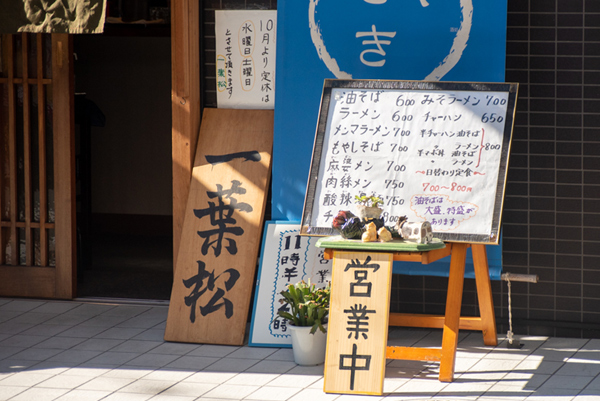 10月より定休は
水曜日土曜日
とさせて頂きます
一葉松
き
油そば 600
ラーメン 600
メンマラーメン 700
もやしそば 700
麻婆メン 700
肉絲メン 750
酸辣
800
みそラーメン 700
チャーハン 650
半チャーハン 油そば
〃 ラーメン
半マーボ丼 油そば
〃 ラーメン
800
日替わり定食
700〜800円
油そばは
大盛、特盛が
あります
一葉松
11時半
営業
営業中